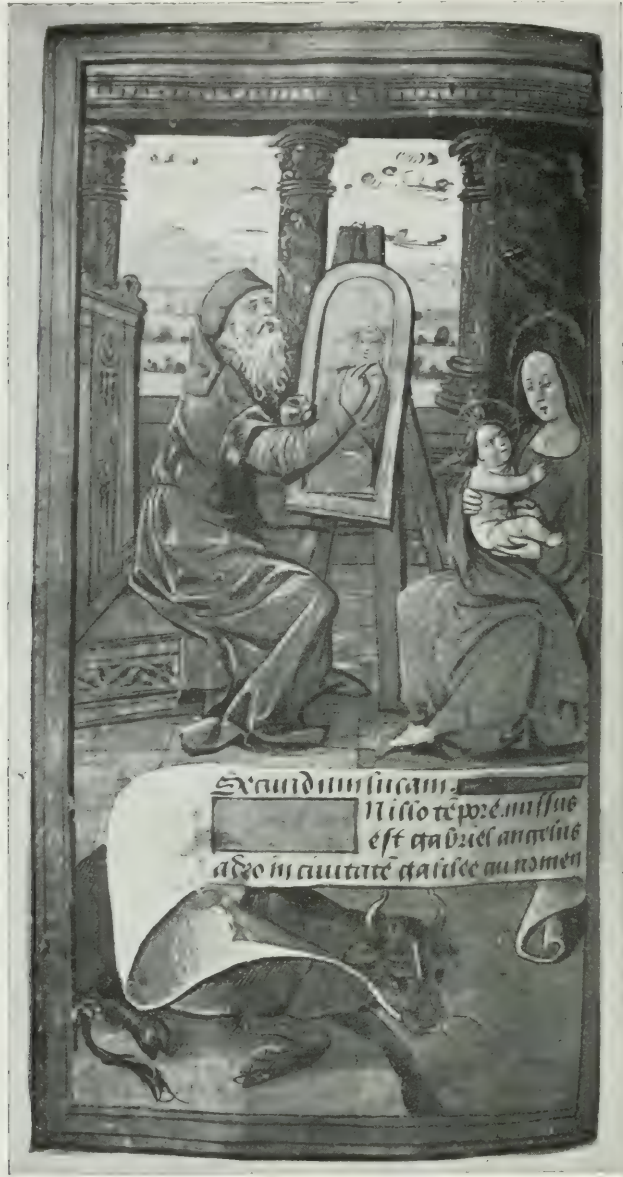 Secundum lucam.
N illo tēpore. missus
est gabriel angelus
a deo in ciuitatē galilee cui nomen